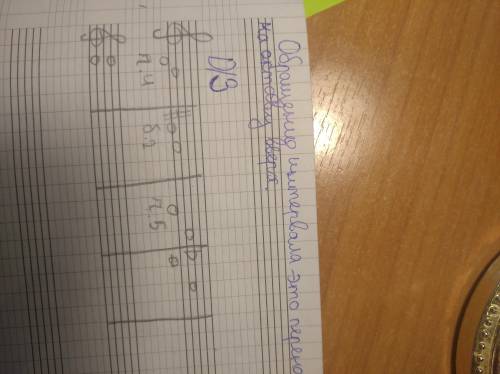 Обращение интервала - это перено
на октаву вверх.
D/З
ч.4 б.2 ч.5